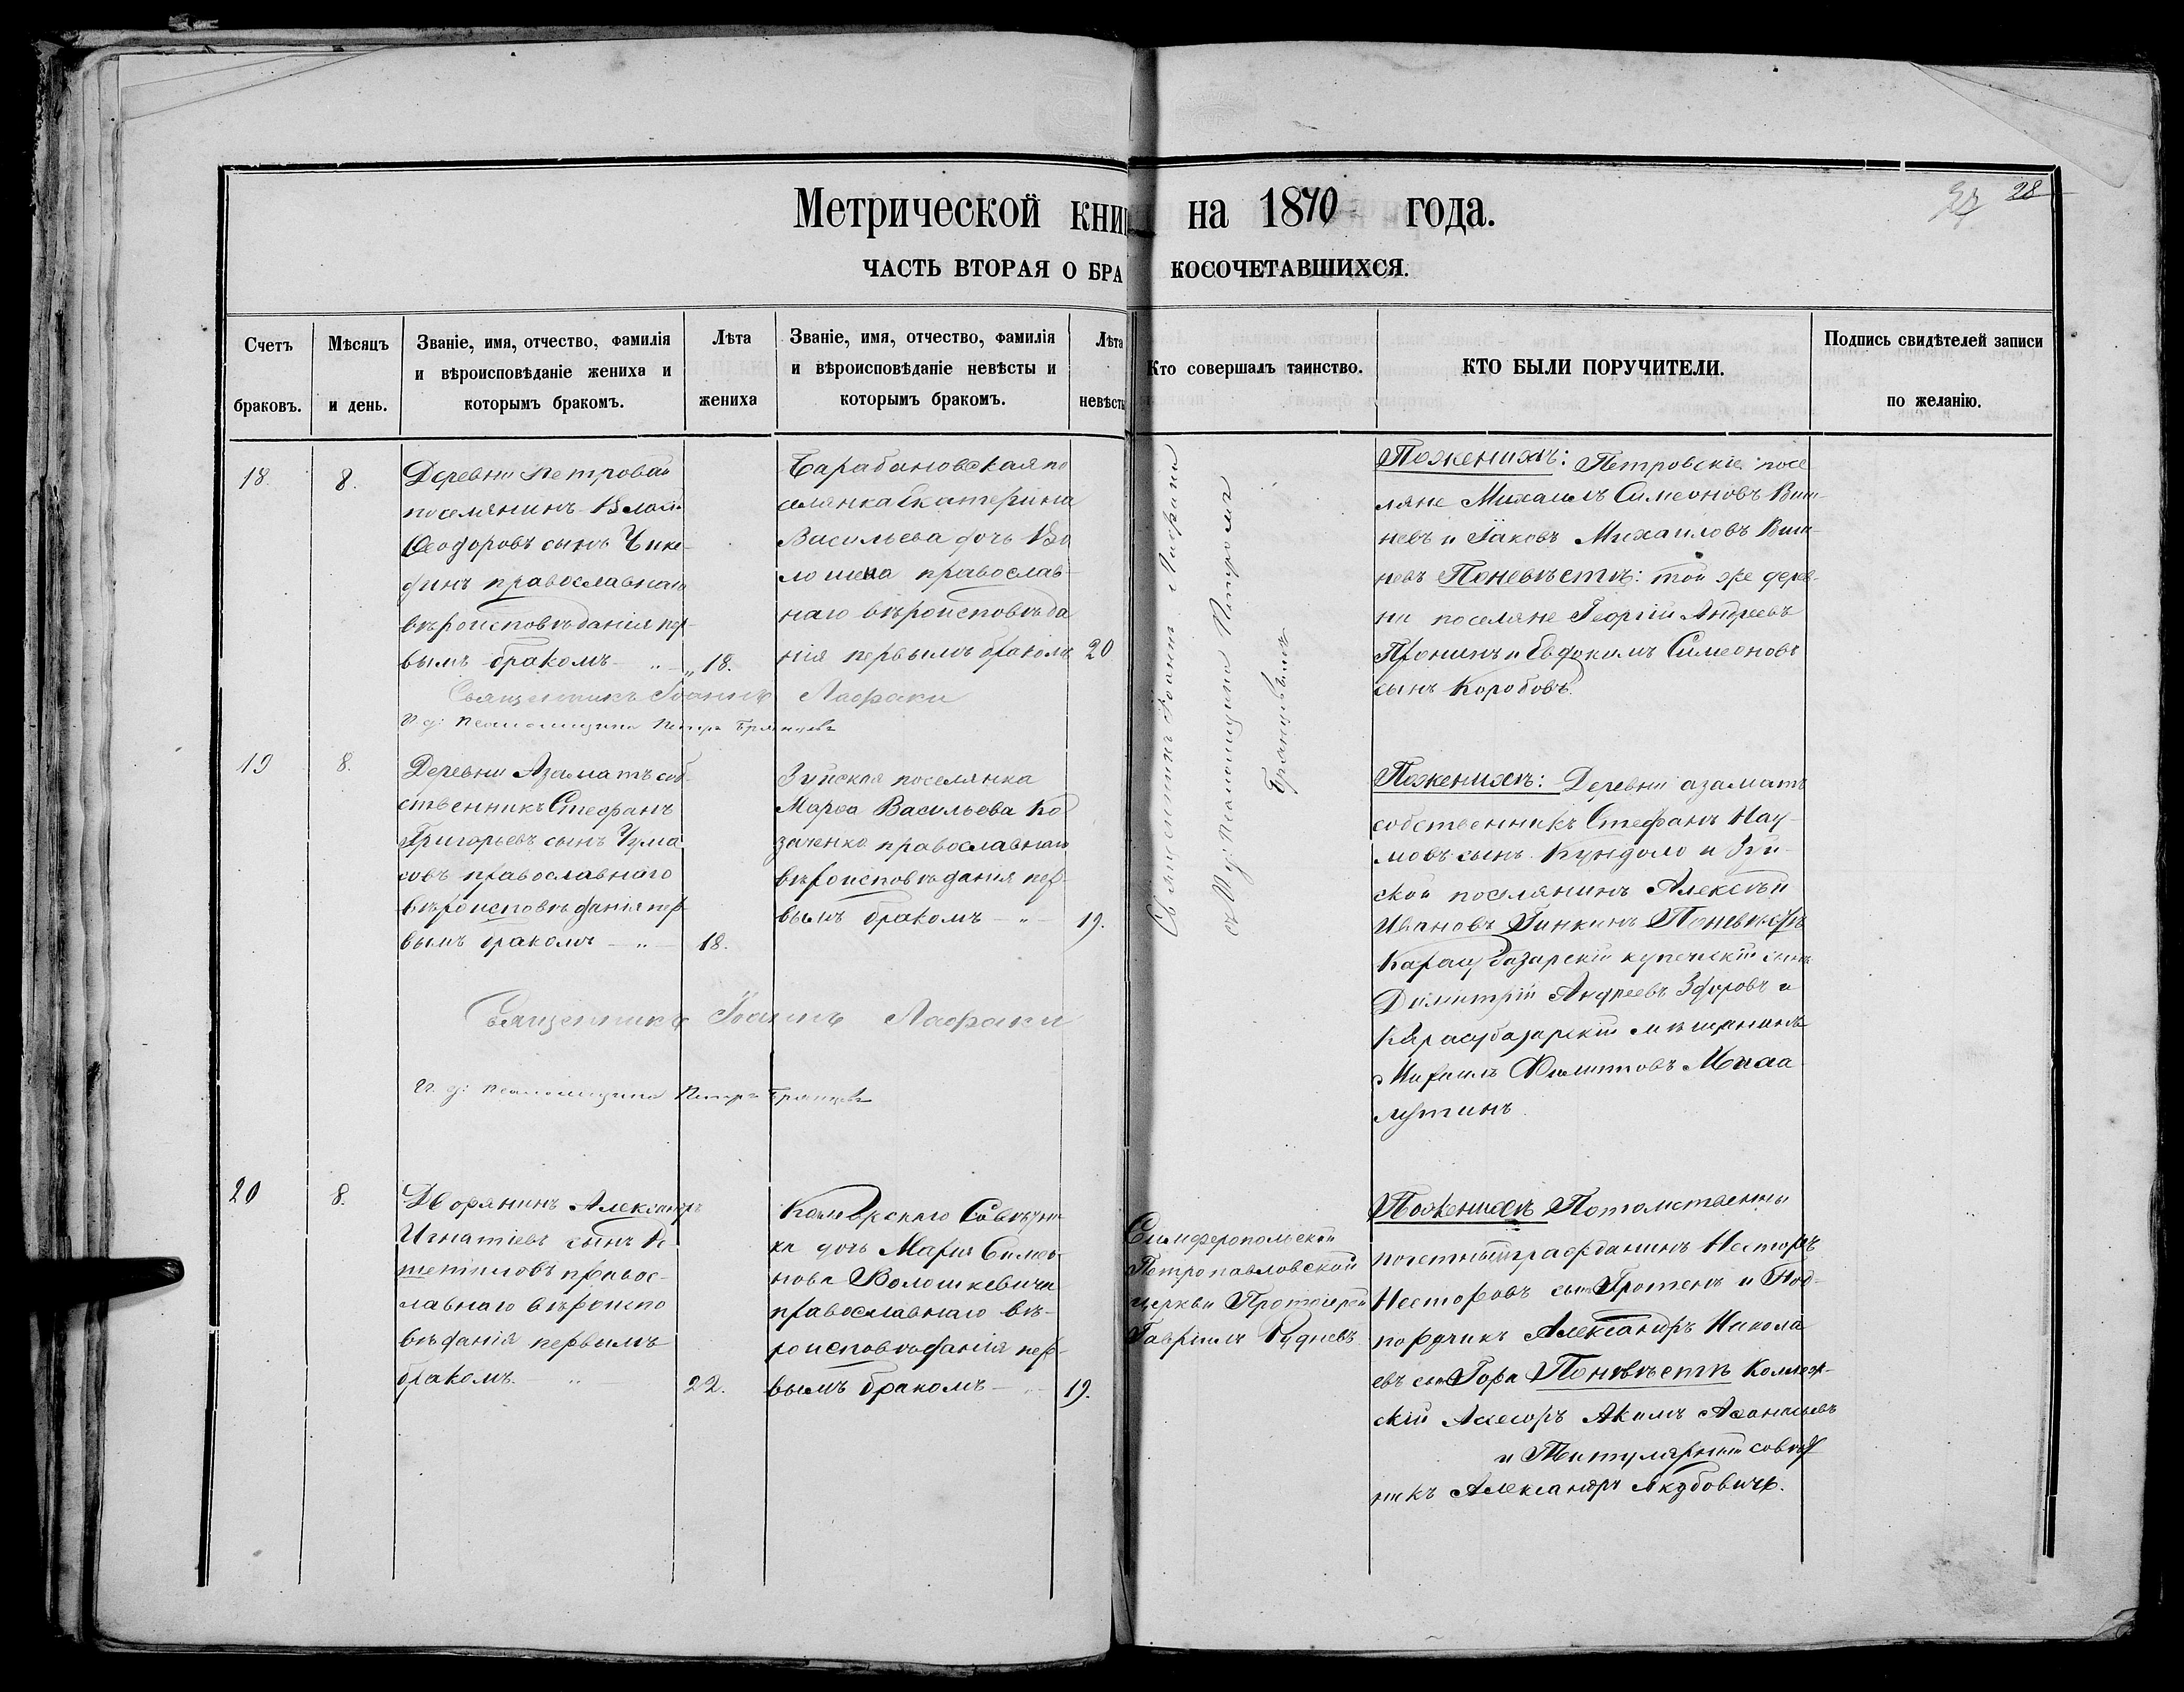 28
Метрической книги на 1870 года.
ЧАСТЬ ВТОРАЯ О БРАКОСОЧЕТАВШИХСЯ.
Счетъ браковъ.
Мѣсяцъ и день.
Званіе, имя, отчество, фамилія
и вѣроисповѣданіе жениха и
которымъ бракомъ.
Лѣта
жениха
Званіе, имя, отчество, фамилія
и вѣроисповѣданіе невѣсты и
которымъ бракомъ.
Лѣта
невѣсты
Кто совершалъ таинство.
КТО БЫЛИ ПОРУЧИТЕЛИ.
Подпись свидѣтелей записи
по желанію.
18.
8.
Деревни Петровой
поселянинъ Власъ
Ѳеодоровъ сынъ Чике-
динъ православнаго
вѣроисповѣданія пер-
вымъ бракомъ
18.
Барабановская по
селянка Екатерина
Васильева дочь Во
лошена православ-
наго вѣроисповѣда
нія первымъ бракомъ
20
Священникъ Іоаннъ Лафаки
И. д: Псаломщика Петръ Брянцевъ
Священникъ Іоаннъ Лафаки
съ И. д: Псаломщика Петромъ
Брянцевымъ
По женихѣ: Петровскіе посе
ляне Михаилъ Симеоновъ Виш-
невъ и Іаковъ Михаиловъ Виш-
невъ По невѣстѣ: той же дерев-
ни поселяне Георгій Андреевъ
Пронинъ и Евдокимъ Симеоновъ
сынъ Коробовъ.
19
8.
Деревни Азаматъ соб-
ственникъ Стефанъ
Григорьевъ сынъ Чума
ковъ православнаго
вѣроисповѣданія пер-
вымъ бракомъ
18.
Зуйская поселянка
Марѳа Васильева Ко
заченко православнаго
вѣроисповѣданія пер-
вымъ бракомъ
19.
Священникъ Іоаннъ Лафаки
И. д: Псаломщика Петръ Брянцевъ
По женихѣ: Деревни Азаматъ
собственникъ Стефанъ Нау-
мовъ сынъ Кундоло и Зуй-
ской поселянинъ Алексѣй
Ивановъ По невѣстѣ
Карасубазарскій купеческій сынъ
Димитрій Андреевъ и
Карасубазарскій мѣщанинъ
Филиповъ
20
8.
Дворянинъ Александръ
Игнатіевъ сынъ
правос-
лавнаго вѣроиспо
вѣданія первымъ
бракомъ.
22.
Совѣтни-
ка дочь Марія Симео-
нова Волошкевича
православнаго вѣ-
роисповѣданія пер-
вымъ бракомъ
19.
Симферопольской
Петропавловской
церкви Протоіерей
Гавріилъ Рудневъ.
По женихѣ Потомственный
почетный гражданинъ Несторъ
Несторовъ сынъ Гротенъ и Под-
поручикъ Александръ Никола
евъ сынъ Гора По невѣстѣ Коллеж-
скій Асесоръ Акимъ Аѳанасьевъ
и Титулярный совѣт
никъ Александръ Якубовичъ.